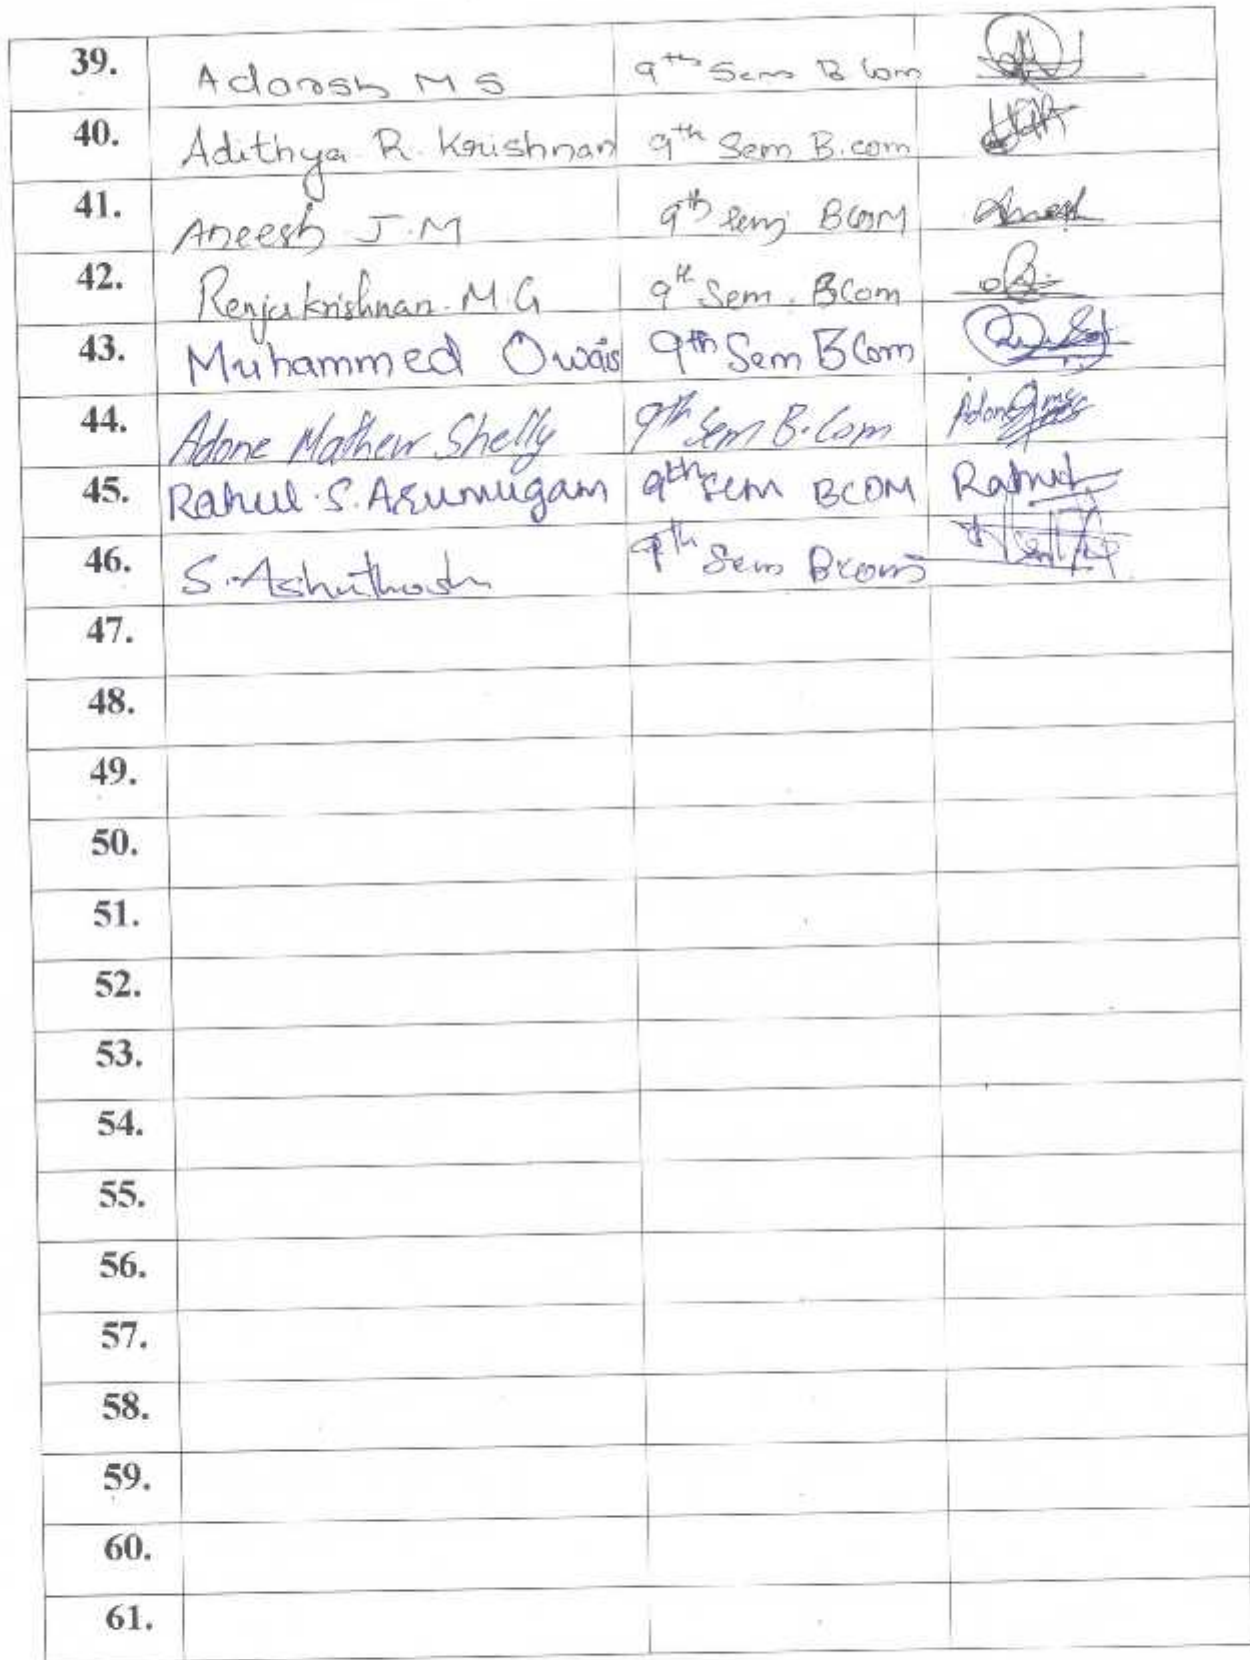 39. Adarsh M S 9th Sem B Com
40. Adithya R. Krishnan 9th Sem B.com
41. Aneesh J.M 9th Sem BCOM Aneesh
42. Renjukrishnan. M.G 9th Sem. BCom
43. Muhammed Owais 9th Sem BCom
44. Adone Mathew Shelly 9th Sem B.Com
45. Rahul S. Arumugam 9th sem BCOM Rahul
46. S. Ashuthosh 9th Sem B.com
47.
48.
49.
50.
51.
52.
53.
54.
55.
56.
57.
58.
59.
60.
61.